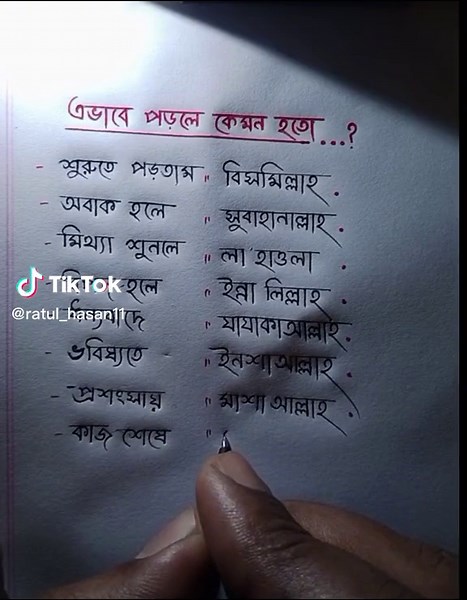 এভাবে পড়লে কেমন হতো...?
- শুরুতে পড়তাম " বিসমিল্লাহ .
- অবাক হলে " সুবাহানাল্লাহ .
- মিথ্যা শুনলে " লা হাওলা .
হলে " ইন্না লিল্লাহ .
TikTok
@ratul_hasan11
" যাযাকাআল্লাহ .
- ভবিষ্যতে " ইনশাআল্লাহ .
- প্রশংসায় " মাশাআল্লাহ .
- কাজ শেষে "